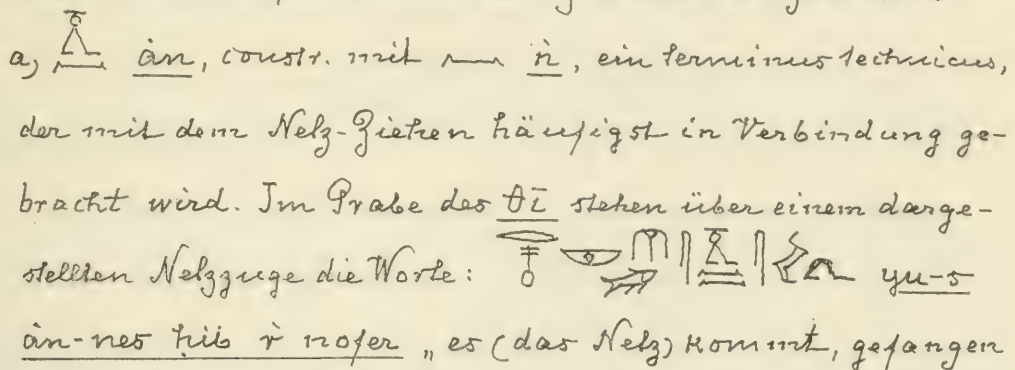 a, àn, constr. mit ṅ, ein terminus technicus,
der mit dem Netz-Ziehen häufigst in Verbindung ge-
bracht wird. Im Grabe des θī stehen über einem darge-
stellten Netzzuge die Worte: yu-s
àn-nes ḥib r̀ nofer „es (das Netz) kommt, gefangen